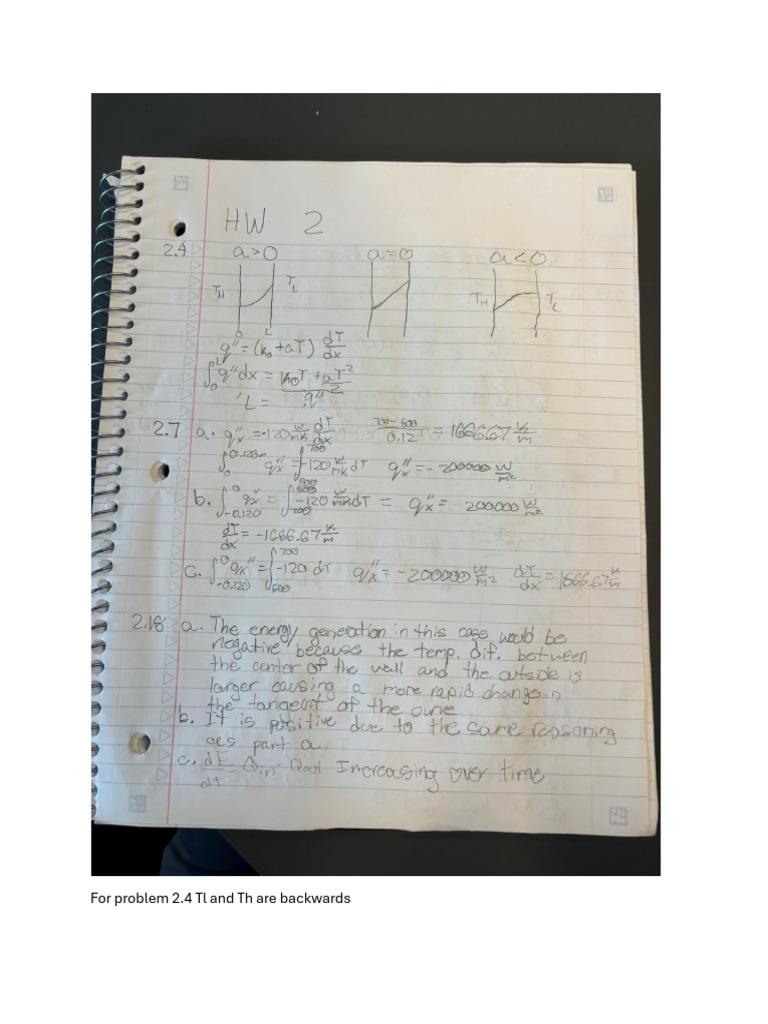 HW 2
2.4 a>0 a=0 a<0
T_H T_L T_H T_L
0 L
q" = (k₀ + aT) dT/dx
∫₀ᴸ q"dx = k₀T + aT²/2
L = q"
2.7 a. qₓ" = -120 W/mK dT/dx 700-500/0.12 = 1666.67 K/m
∫₀^0.120m qₓ" = ∫^700 -120 W/mK dT qₓ" = -200000 W/m²
b. ∫_-0.120^0 qₓ" = ∫ -120 W/mK dT = qₓ" = 200000 W/m²
dT/dx = -1666.67 K/m
c. ∫_-0.120^0 qₓ" = ∫_500^700 -120 dT qₓ" = -200000 W/m² dT/dx = 1666.67 K/m
2.18 a. The energy generation in this case would be
negative because the temp. dif. between
the center of the wall and the outside is
larger causing a more rapid change in
the tangent of the curve
b. It is positive due to the same reasoning
as part a
c. dE/dt = Qin - Qout Increasing over time
For problem 2.4 Tl and Th are backwards